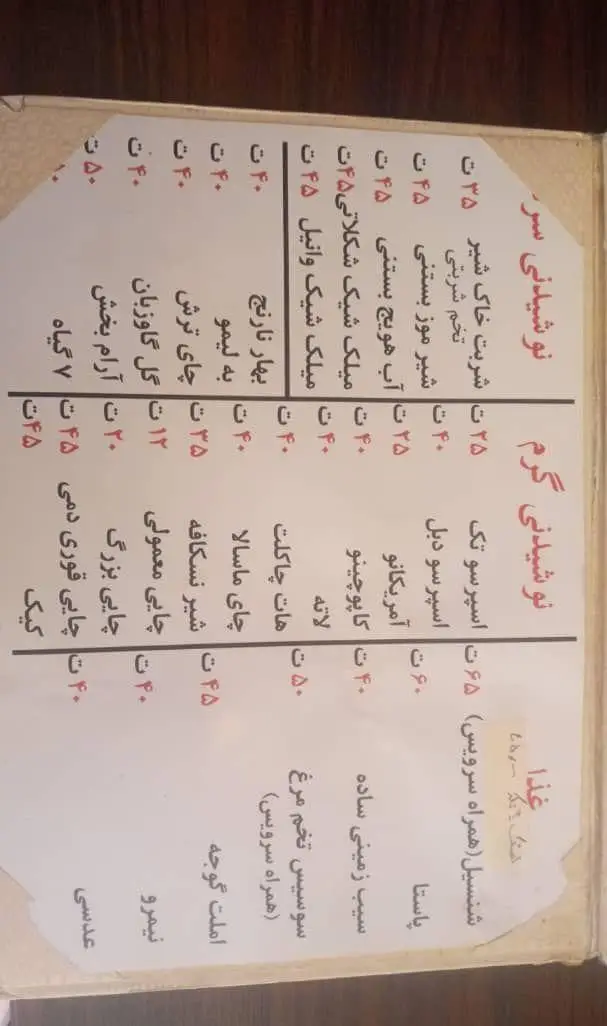 غذا
شنسیل(همراه سرویس) ۶۵ ت
پاستا ۶۰ ت
سیب زمینی ساده ۴۰ ت
سوسیس تخم مرغ ۵۰ ت
(همراه سرویس)
املت گوجه ۴۵ ت
نیمرو ۴۰ ت
عدسی ۴۰ ت
نوشیدنی گرم
اسپرسو تک ۲۵ ت
اسپرسو دبل ۴۰ ت
آمریکانو ۲۵ ت
کاپوچینو ۴۰ ت
لاته ۴۰ ت
هات چاکلت ۴۰ ت
چای ماسالا ۴۰ ت
شیر نسکافه ۳۵ ت
چایی معمولی ۱۲ ت
چایی بزرگ ۲۰ ت
چایی قوری دمی ۴۵ ت
کیک ۴۵ ت
نوشیدنی سر
شربت خاک شیر ۳۵ ت
تخم شربتی
شیر موز بستنی ۴۵ ت
آب هویج بستنی ۴۵ ت
میلک شیک شکلاتی ۴۵ ت
میلک شیک وانیل ۴۵ ت
بهار نارنج ۴۰ ت
به لیمو ۴۰ ت
چای ترش ۴۰ ت
گل گاوزبان ۴۰ ت
آرام بخش ۵۰ ت
۷ گیاه